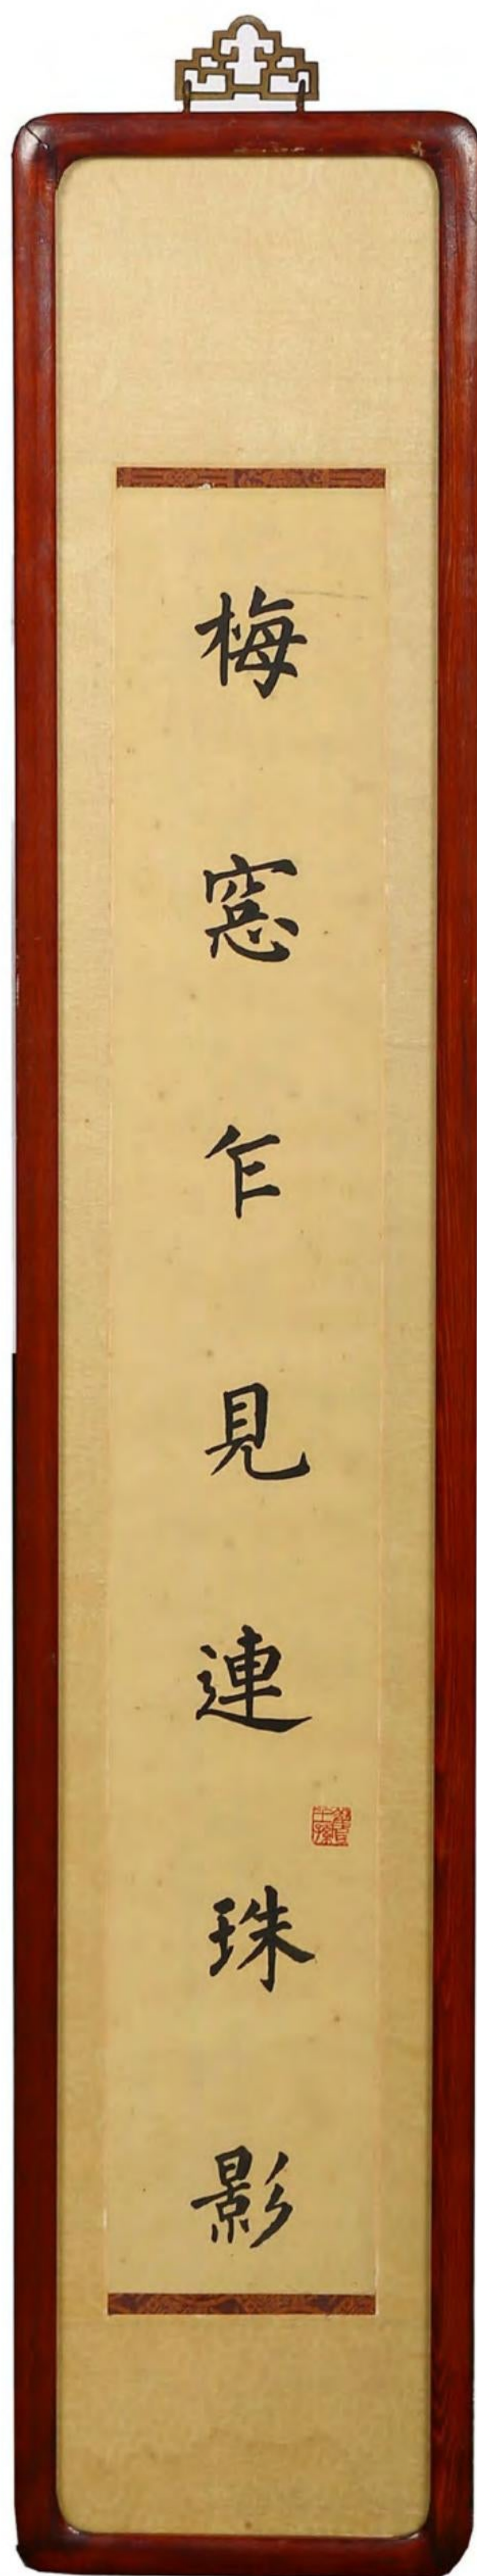 梅窓乍見連珠影